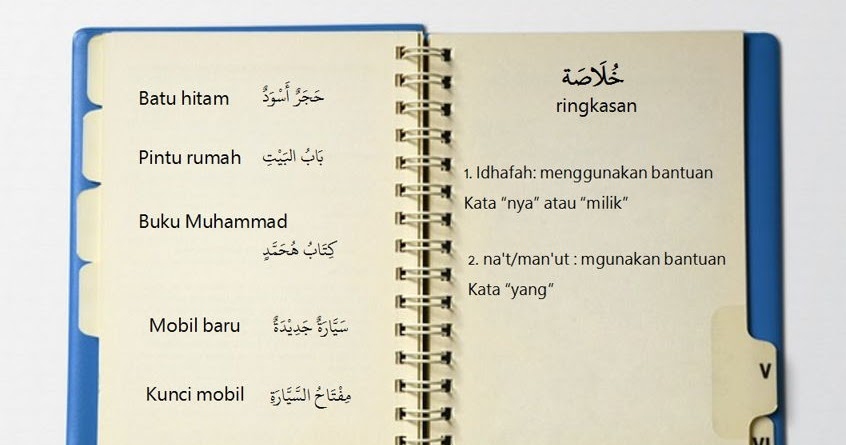 Batu hitam حَجَرٌ أَسْوَدٌ
Pintu rumah بَابُ البَيْتِ
Buku Muhammad
كِتَابُ هُحَمَّدٍ
Mobil baru سَيَّارَةٌ جَدِيْدَةٌ
Kunci mobil مِفْتَاحُ السَّيَّارَةِ
خُلَاصَة
ringkasan
1. Idhafah: menggunakan bantuan
Kata “nya” atau “milik”
2. na't/man'ut : mgunakan bantuan
Kata “yang”
V
VI